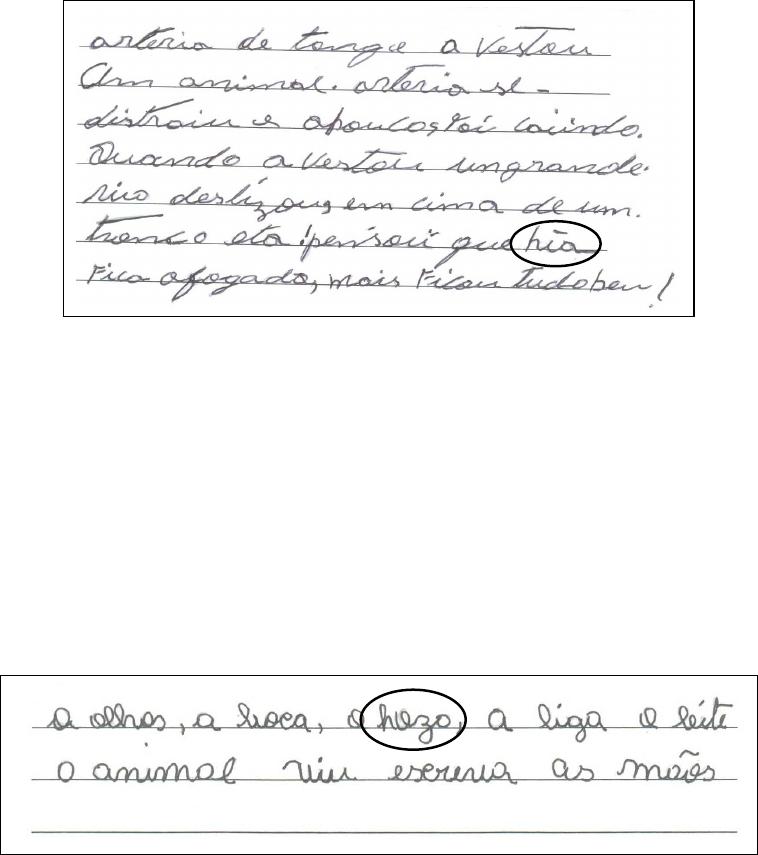 arteria de tange a vestou
Um animal. arteria se-
distraiu e apoucos foi caindo.
Quando avestou um grande.
rio deslizou, em cima de um.
tronco eta pensou que hia
Fica afogado, mais Ficou tudobem!
a olhos, a boca, o hozo, a liga o leite
o animal viu escrevia as mãos